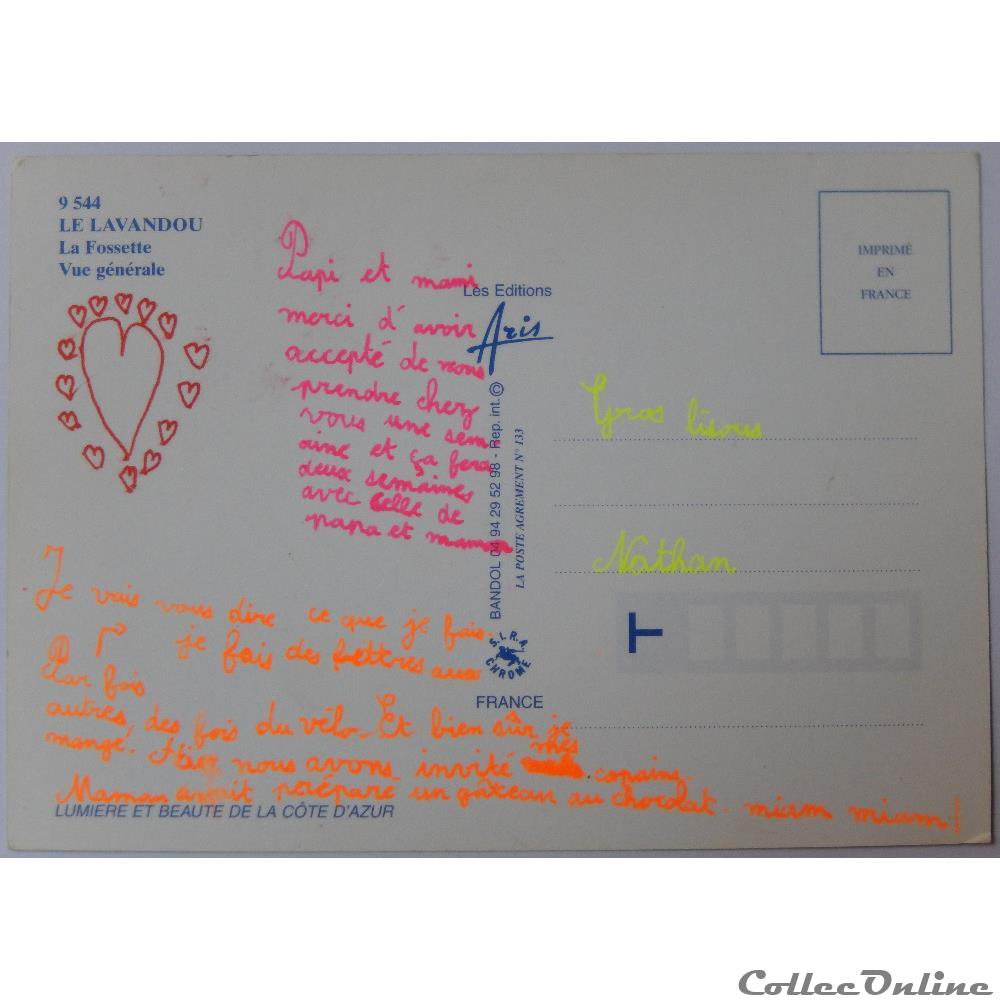 9 544
LE LAVANDOU
La Fossette
Vue générale
Papi et mami
merci d'avoir
accepté de nous
prendre chez
vous une sem
aine et ça fera
deux semaines
avec celle de
papa et maman
Je vais vous dire ce que je fais.
Par fois je fais des lettres aux
autres, des fois du vélo. Et bien sûr je
mange. Hier nous avons invité mes copains.
Maman avait préparé un gâteau au chocolat. miam miam !
LUMIERE ET BEAUTE DE LA CÔTE D'AZUR
Les Editions
Aris
BANDOL 04 94 29 52 98 - Rep. int. ©
LA POSTE AGREMENT N° 133
S.I.R.A.
CHROME
FRANCE
IMPRIMÉ
EN
FRANCE
Gros bisous
Nathan
T
CollecOnline